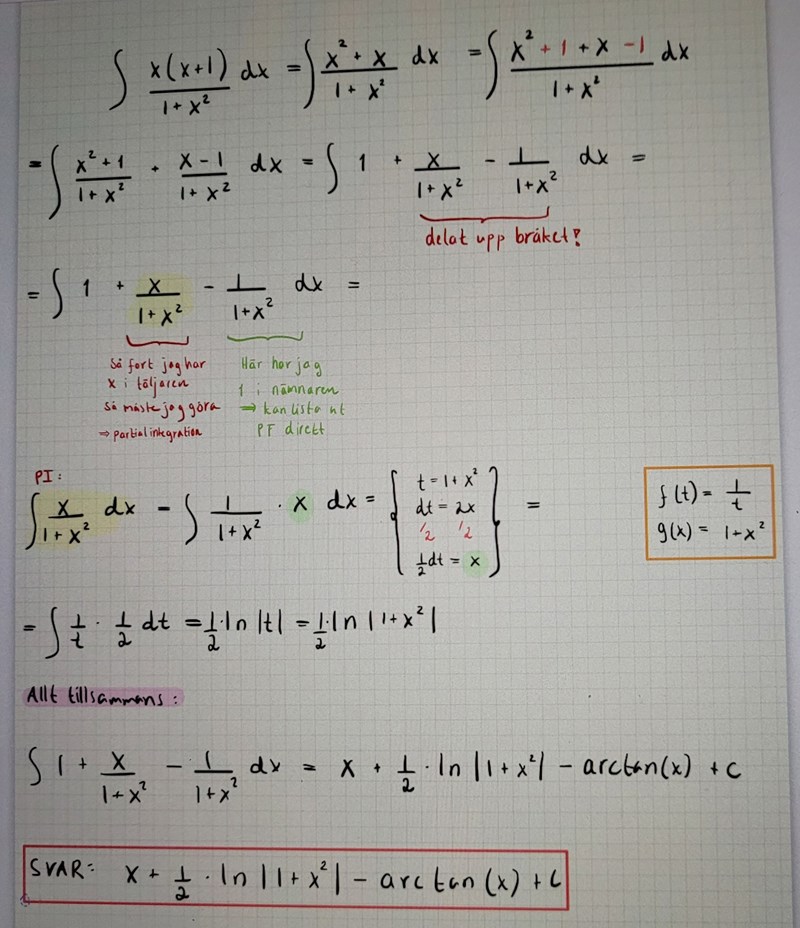 ∫ x(x+1)/(1+x²) dx = ∫ (x²+x)/(1+x²) dx = ∫ (x²+1+x-1)/(1+x²) dx
= ∫ (x²+1)/(1+x²) + (x-1)/(1+x²) dx = ∫ 1 + x/(1+x²) - 1/(1+x²) dx =
delat upp bråket!
= ∫ 1 + x/(1+x²) - 1/(1+x²) dx =
Så fort jag har
x i täljaren
så måste jag göra
⇒ partialintegration
Här har jag
1 i nämnaren
⇒ kan lista ut
PF direkt
PI:
∫ x/(1+x²) dx - ∫ 1/(1+x²) · x dx = { t = 1+x²
dt = 2x
1/2 1/2
1/2 dt = x } =
f(t) = 1/t
g(x) = 1+x²
= ∫ 1/t · 1/2 dt = 1/2 · ln |t| = 1/2 · ln |1+x²|
Allt tillsammans:
∫ 1 + x/(1+x²) - 1/(1+x²) dx = x + 1/2 · ln |1+x²| - arctan(x) + C
SVAR: x + 1/2 · ln |1+x²| - arctan(x) + C